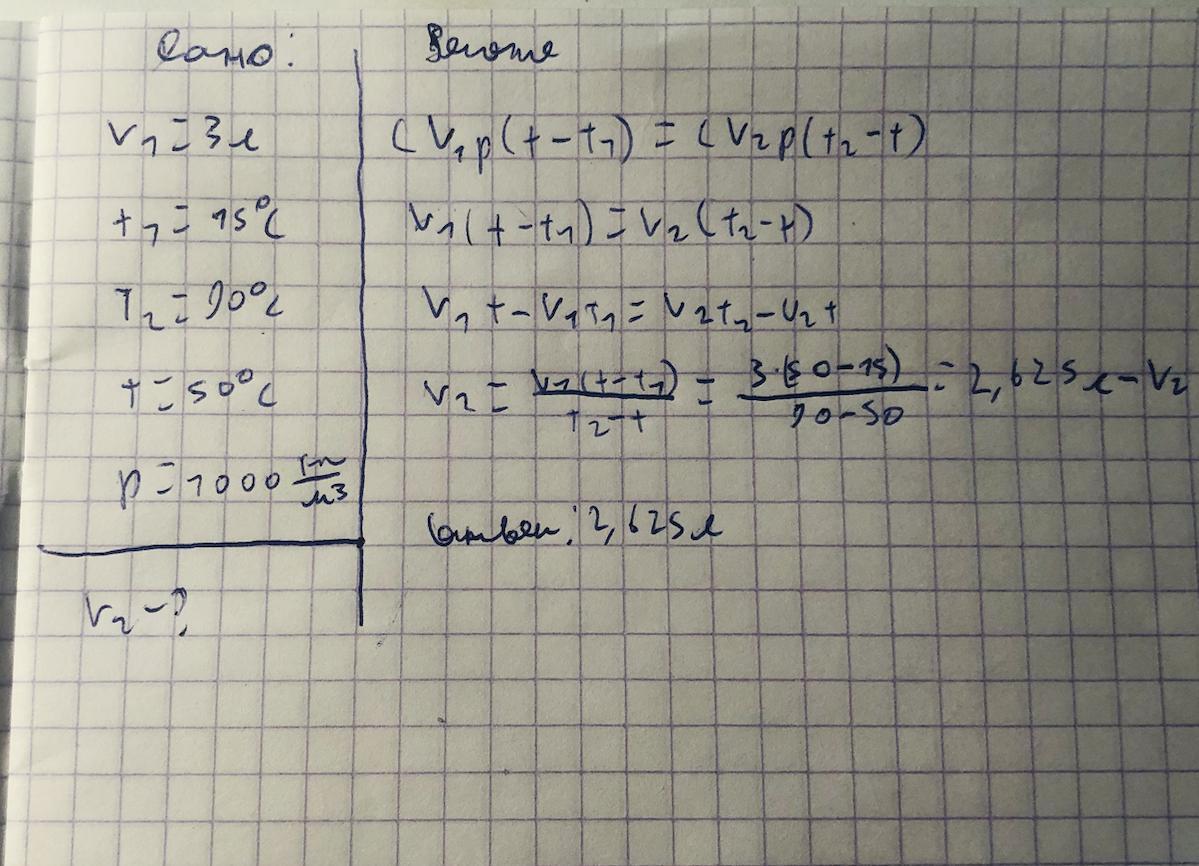 Дано:
V₁ = 3 л
t₁ = 15°C
T₂ = 90°C
t = 50°C
p = 1000 кг/м³
V₂ - ?
Решение
C V₁ p (t - t₁) = C V₂ p (t₂ - t)
V₁ (t - t₁) = V₂ (t₂ - t)
V₁ t - V₁ t₁ = V₂ t₂ - V₂ t
V₂ = V₁ (t - t₁) / t₂ - t = 3·(50 - 15) / 90 - 50 = 2,625 л - V₂
Ответ: 2,625 л